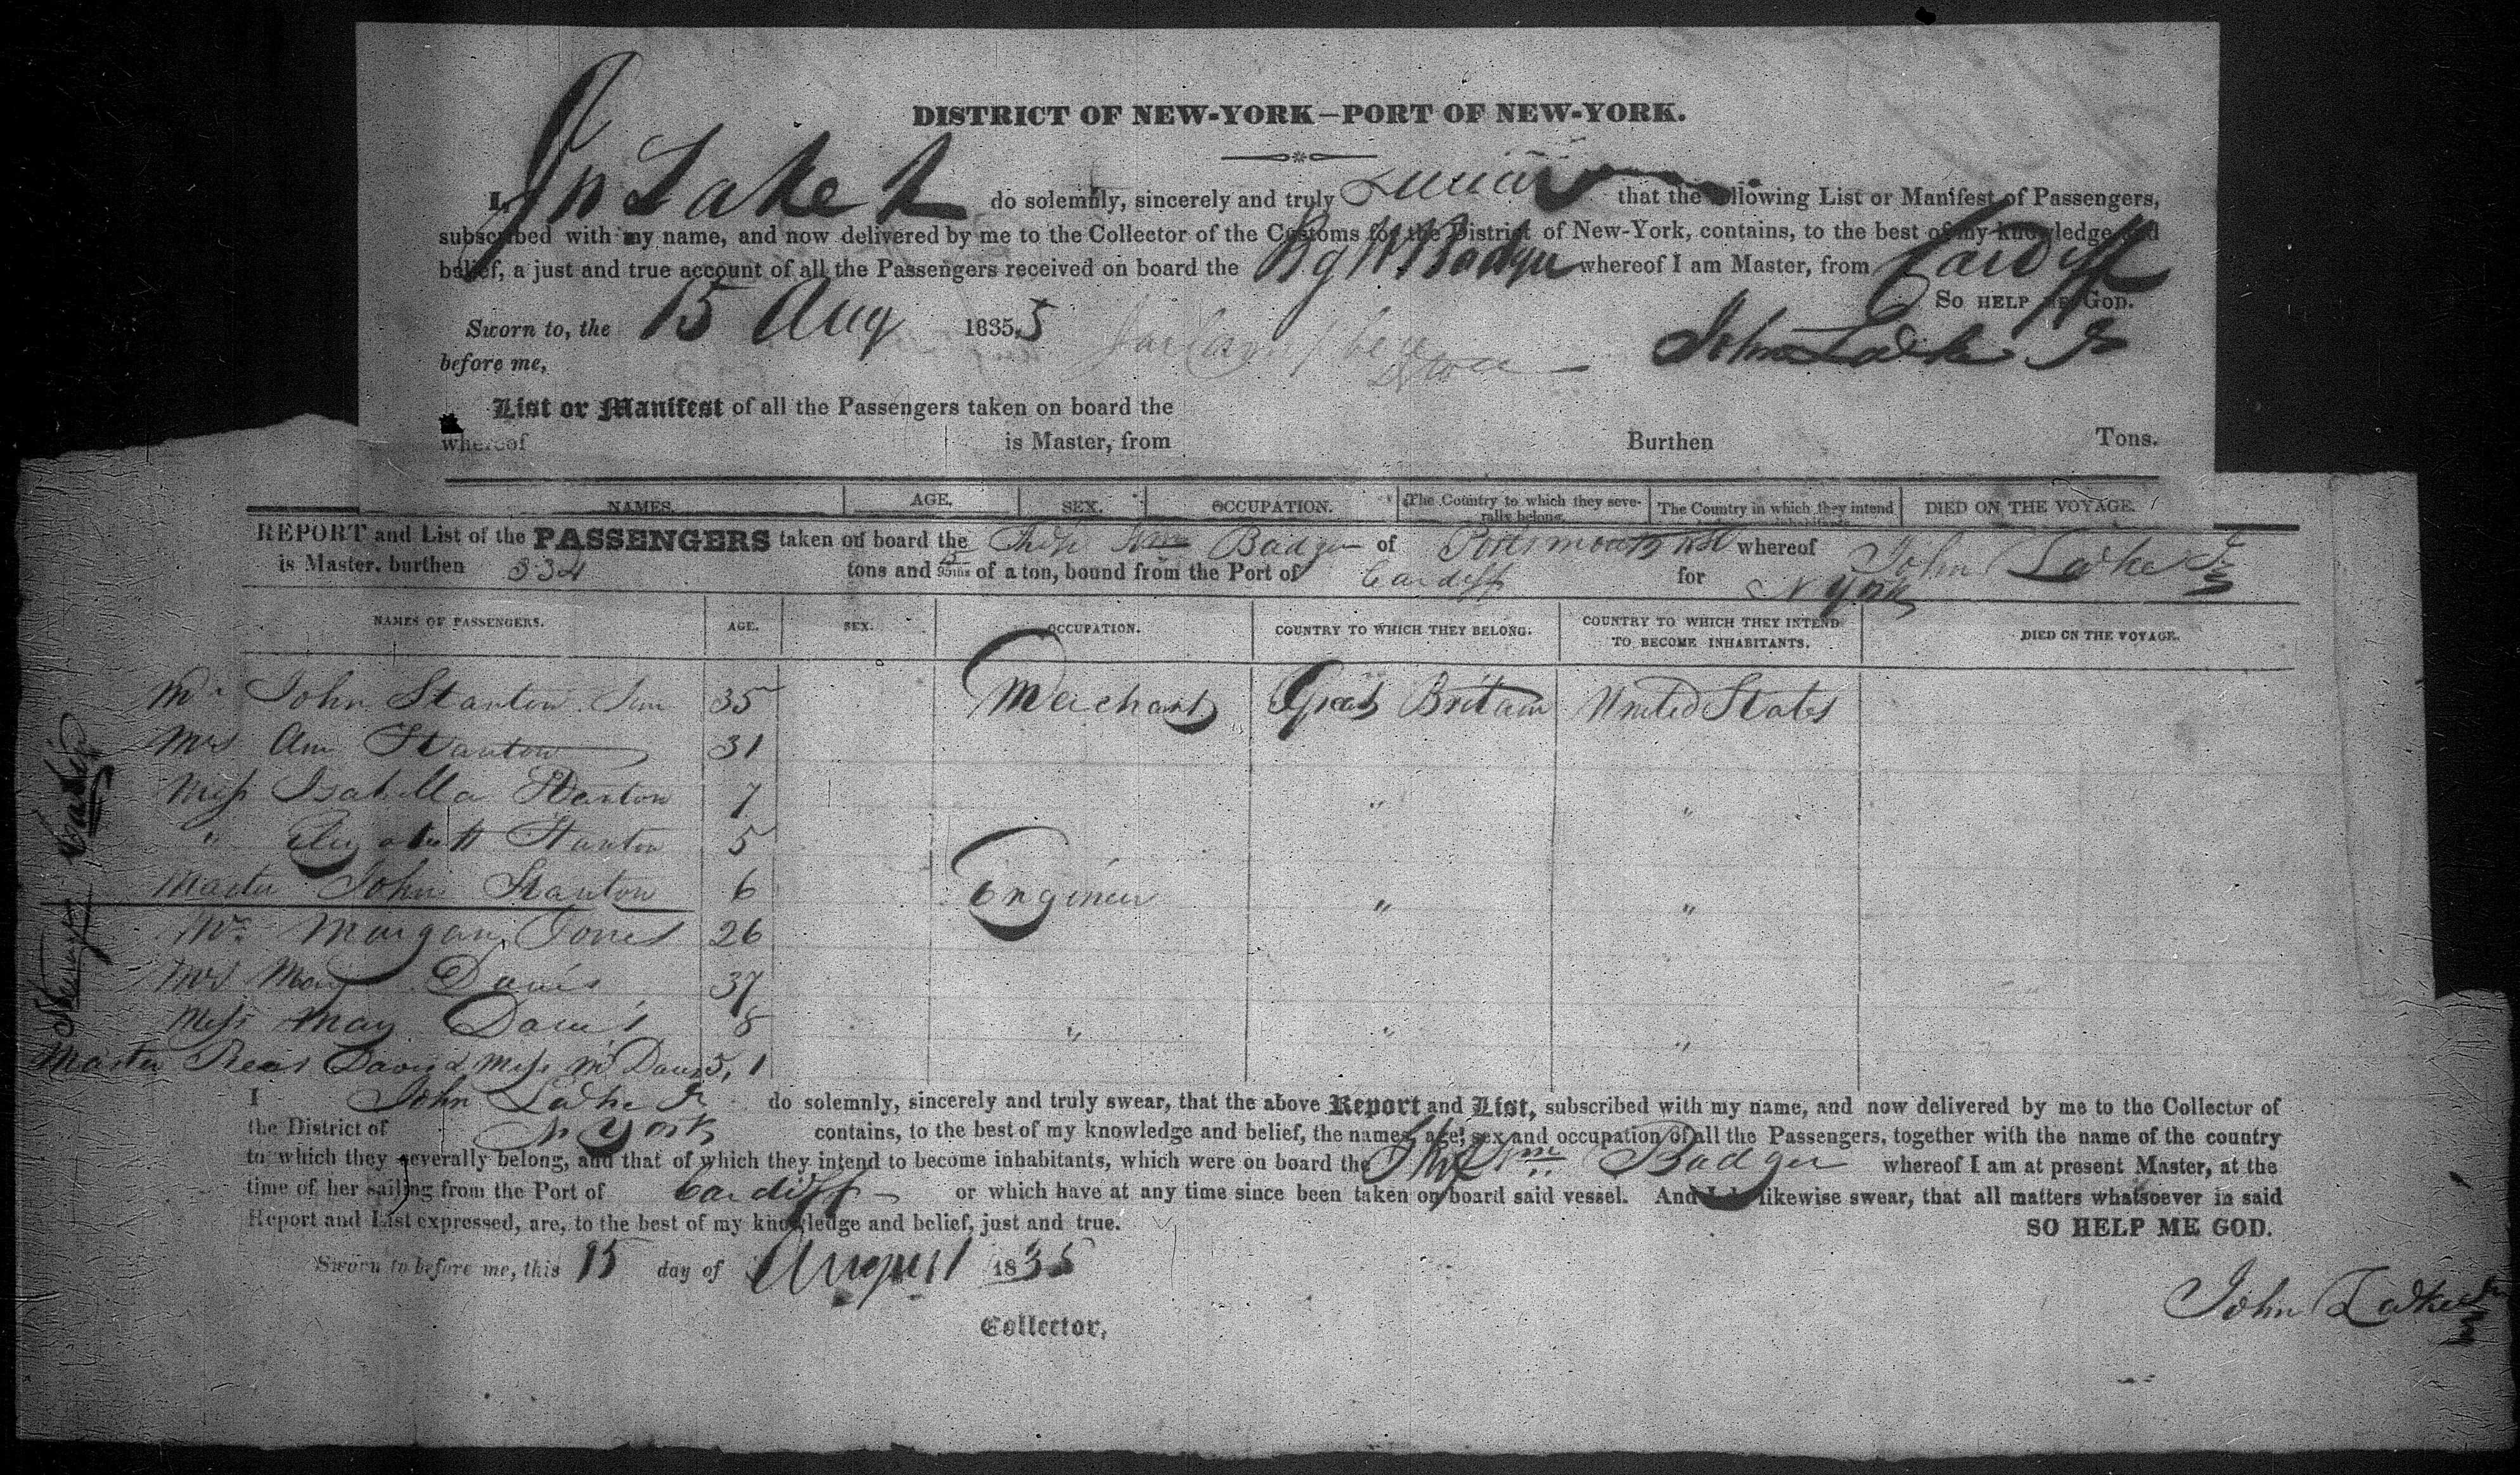 DISTRICT OF NEW-YORK—PORT OF NEW-YORK.
I, Jn Lake Jr do solemnly, sincerely and truly swear that the following List or Manifest of Passengers,
subscribed with my name, and now delivered by me to the Collector of the Customs for the District of New-York, contains, to the best of my knowledge and
belief, a just and true account of all the Passengers received on board the W Badger whereof I am Master, from Cardiff
SO HELP ME GOD.
Sworn to, the 15 Aug 1835,5
before me,
John Lake Jr
List or Manifest of all the Passengers taken on board the
whereof is Master, from Burthen Tons.
NAMES. AGE. SEX. OCCUPATION. The Country to which they severally belong. The Country in which they intend inhabitants. DIED ON THE VOYAGE.
REPORT and List of the PASSENGERS taken on board the Ship Wm Badger of Portsmouth NH whereof John Lake Jr
is Master, burthen 334 tons and 95ths of a ton, bound from the Port of Cardiff for N York
NAMES OF PASSENGERS. AGE. SEX. OCCUPATION. COUNTRY TO WHICH THEY BELONG. COUNTRY TO WHICH THEY INTEND TO BECOME INHABITANTS. DIED ON THE VOYAGE.
Mr John Stanton Sen 35 Merchant Great Britain United States
Mrs Ann Stanton 31
Miss Isabella Stanton 7 " "
" Elizabeth Stanton 5
Master John Stanton 6 Engineer " "
Mr. Morgan Jones 26
Mrs Mary Davis 37
Miss Mary Davis 8 " " "
Master Rees Davis & Miss M Davis 5, 1
Steerage Cabin
I John Lake Jr do solemnly, sincerely and truly swear, that the above Report and List, subscribed with my name, and now delivered by me to the Collector of
the District of N York contains, to the best of my knowledge and belief, the names, age, sex and occupation of all the Passengers, together with the name of the country
to which they severally belong, and that of which they intend to become inhabitants, which were on board the Ship Wm Badger whereof I am at present Master, at the
time of her sailing from the Port of Cardiff or which have at any time since been taken on board said vessel. And I do likewise swear, that all matters whatsoever in said
Report and List expressed, are, to the best of my knowledge and belief, just and true.
SO HELP ME GOD.
Sworn to before me, this 15 day of August 1835
John Lake Jr
Collector,